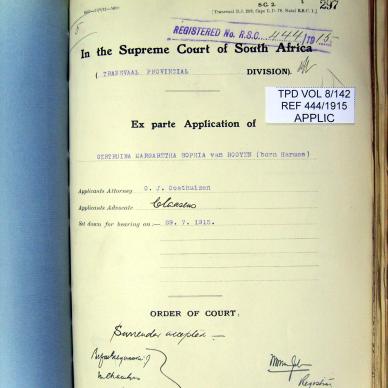 S.C. 2.
297
REGISTERED No. R.S.C. 444/15
In the Supreme Court of South Africa
( TRANSVAAL PROVINCIAL DIVISION).
TPD VOL 8/142
REF 444/1915
APPLIC
Ex parte Application of
GERTRUINA MARGARETHA SOPHIA van ROOYEN (born Harmse)
Applicants Attorney O. J. Oosthuizen
Applicants Advocate
Set down for hearing on:— 29. 7. 1915.
ORDER OF COURT:
Surrender accepted —
Registrar